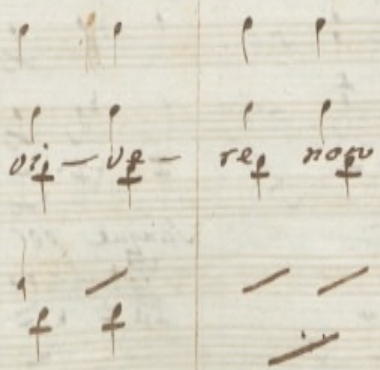 vi - ve - re non